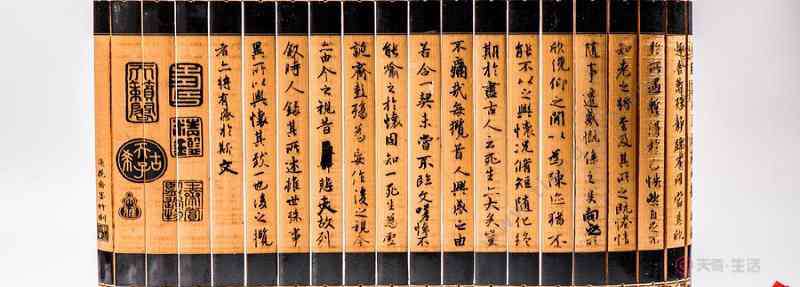 趣舍萬殊靜躁不同當其欣
於所遇暫得於己怏然自足不
知老之將至及其所之既惓情
隨事遷感慨係之矣向之所
欣俛仰之間以為陳迹猶不
能不以之興懷況脩短隨化終
期於盡古人云死生亦大矣豈
不痛哉每攬昔人興感之由
若合一契未嘗不臨文嗟悼不
能喻之於懷固知一死生為虛
誕齊彭殤為妄作後之視今
亦由今之視昔悲夫故列
敘時人錄其所述雖世殊事
異所以興懷其致一也後之攬
者亦將有感於斯文
天奇·生活